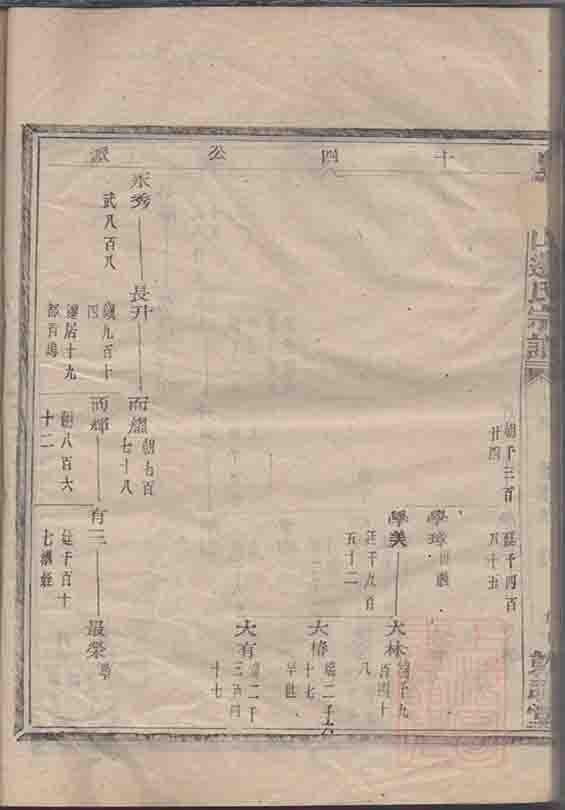 氏宗譜
十四公派
朝千三百
廿四
廷千四百
五十五
學璋
學美
廷千九百
五十二
大林
百四十
八
大椿
二千六
十七
早世
大有
二千
三百四
十七
永秀
武八百八
長升
九百十
四
遷居十九
都
而耀
朝七百
七十八
而輝
朝八百六
十二
有三
廷千百十
七
最榮